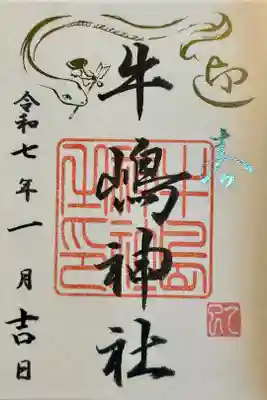 迎春
牛嶋神社
令和七年一月吉日